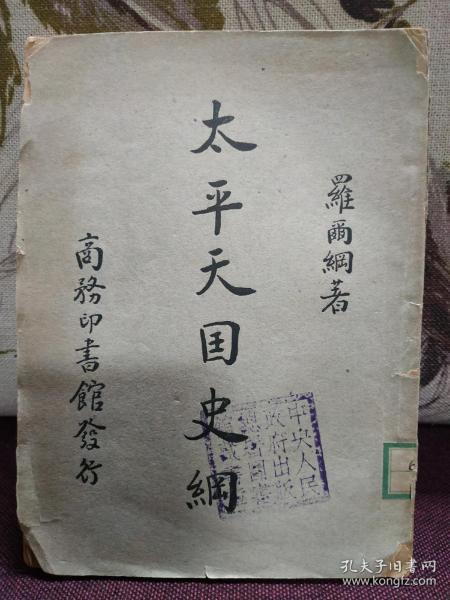 羅爾綱著
太平天囯史綱
商務印書館發行
中央人民
政府出版
總署圖書
孔夫子旧书网
www.kongfz.com